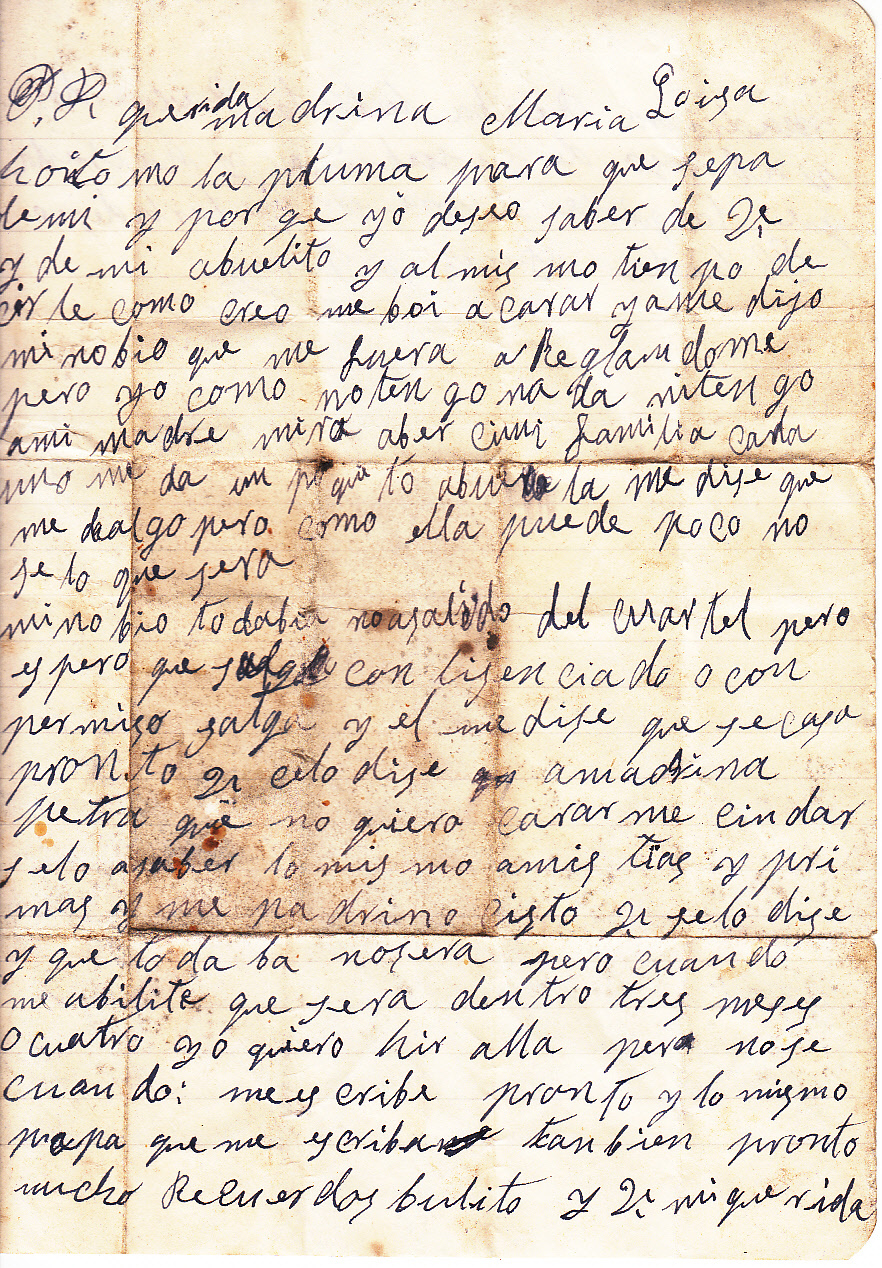 P. D. querida madrina Maria Loisa
hoi tomo la pluma para que sepa
de mi y por qe yo deseo saber de 2e
y de mi abuelito y al mis mo tien po de
cir le como creo me boi a carar ya me dijo
mi nobio que me fuera a Reglandome
pero yo como noten go na da niten go
ami madre mira aber cimi familia cada
uno me da un poqui to abuela la me dise que
me da algo pero como ella puede poco no
se lo que sera
mi no bio to dabia no a salido del cuar tel pero
es pero que salga con lisen ciado o con
permiso salga y el me dise que se casa
pron to 2e celo dise amadrina
Petra que no quiero carar me cin dar
selo asaber lo mis mo amis tias y pri
mas y me padrino cisto 2e se lo dise
y que to da ba nosera pero cuando
me abilite que sera dentro tres meses
o cuatro yo quiero hir alla pero nose
cuan do: me es cribe pron to y lo mismo
papa que me escriba tan bien pronto
mucho Recuerdos bulito y 2e mi que rida